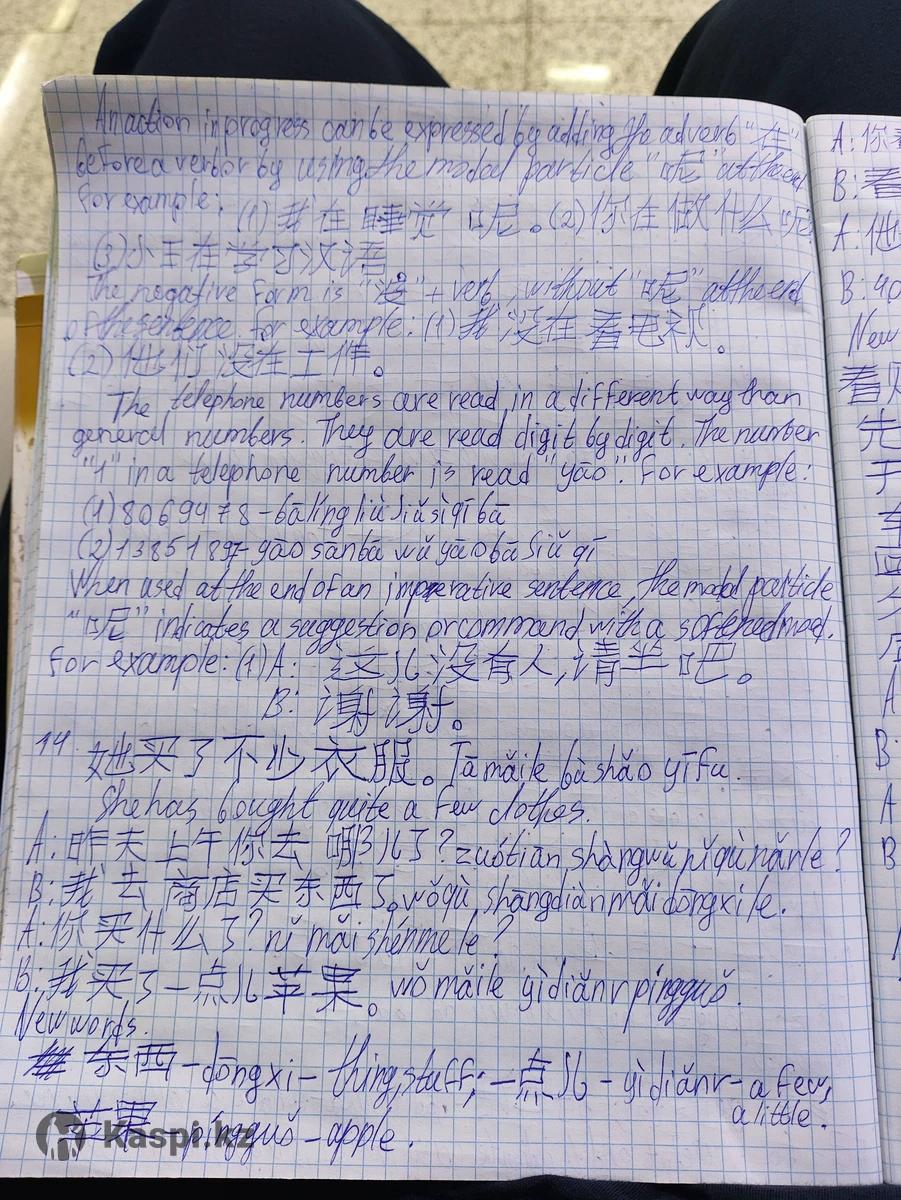 An action in progress can be expressed by adding the adverb "在"
before a verb or by using the modal particle "呢" at the end
for example: (1) 我在睡觉呢。(2) 你在做什么呢
(3) 小王在学习汉语。
The negative form is "没" + verb, without "呢" at the end
of the sentence for example: (1) 我没在看电视。
(2) 他们没在工作。
The telephone numbers are read in a different way than
general numbers. They are read digit by digit. The number
"1" in a telephone number is read "yāo". For example:
(1) 8069478 - bālíngliùjiǔsìqībā
(2) 13851897 yāo sānbā wǔ yāobājiǔ qī
When used at the end of an imperative sentence, the modal particle
"呢" indicates a suggestion or command with a softened mood.
for example: (1) A: 这儿没有人, 请坐吧。
B: 谢谢。
14. 她买了不少衣服。Tā mǎile bù shǎo yīfu.
She has bought quite a few clothes.
A: 昨天上午你去哪儿了? zuótiān shàngwǔ nǐ qù nǎrle?
B: 我去商店买东西了。wǒ qù shāngdiàn mǎi dōngxi le.
A: 你买什么了? nǐ mǎi shénme le?
B: 我买了一点儿苹果。wǒ mǎile yìdiǎnr píngguǒ.
New words.
东西 - dōngxi - thing, stuff; 一点儿 - yìdiǎnr - a few,
a little.
苹果 - píngguǒ - apple.
Kaspi.kz
A: 你
B: 看
A: 他
B: 40
New
看见
先
A
B:
A
B